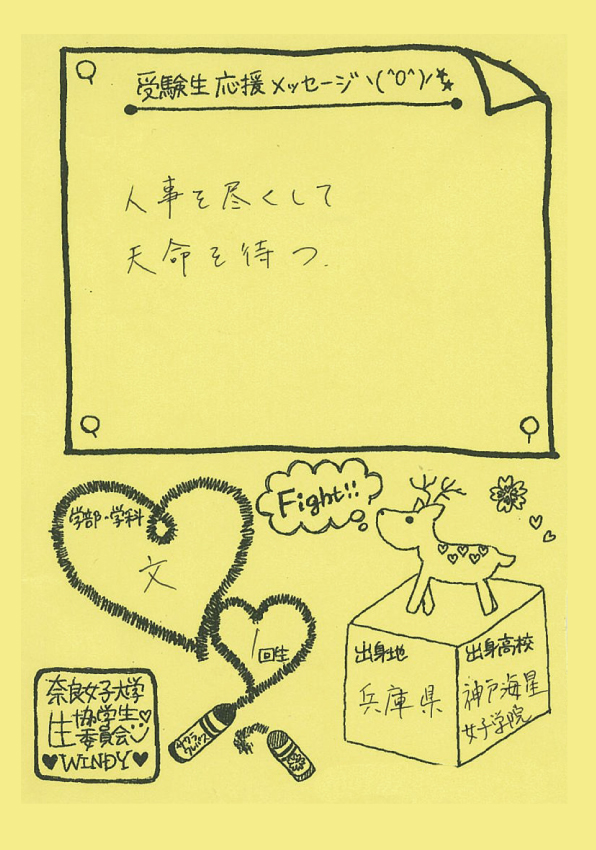 受験生応援メッセージ\(^0^)/
人事を尽くして
天命を待つ.
Fight!!
学部・学科
文
1回生
出身地
兵庫県
出身高校
神戸海星
女子学院
奈良女子大学
生協学生
委員会
WINDY
サクラ
クレパス